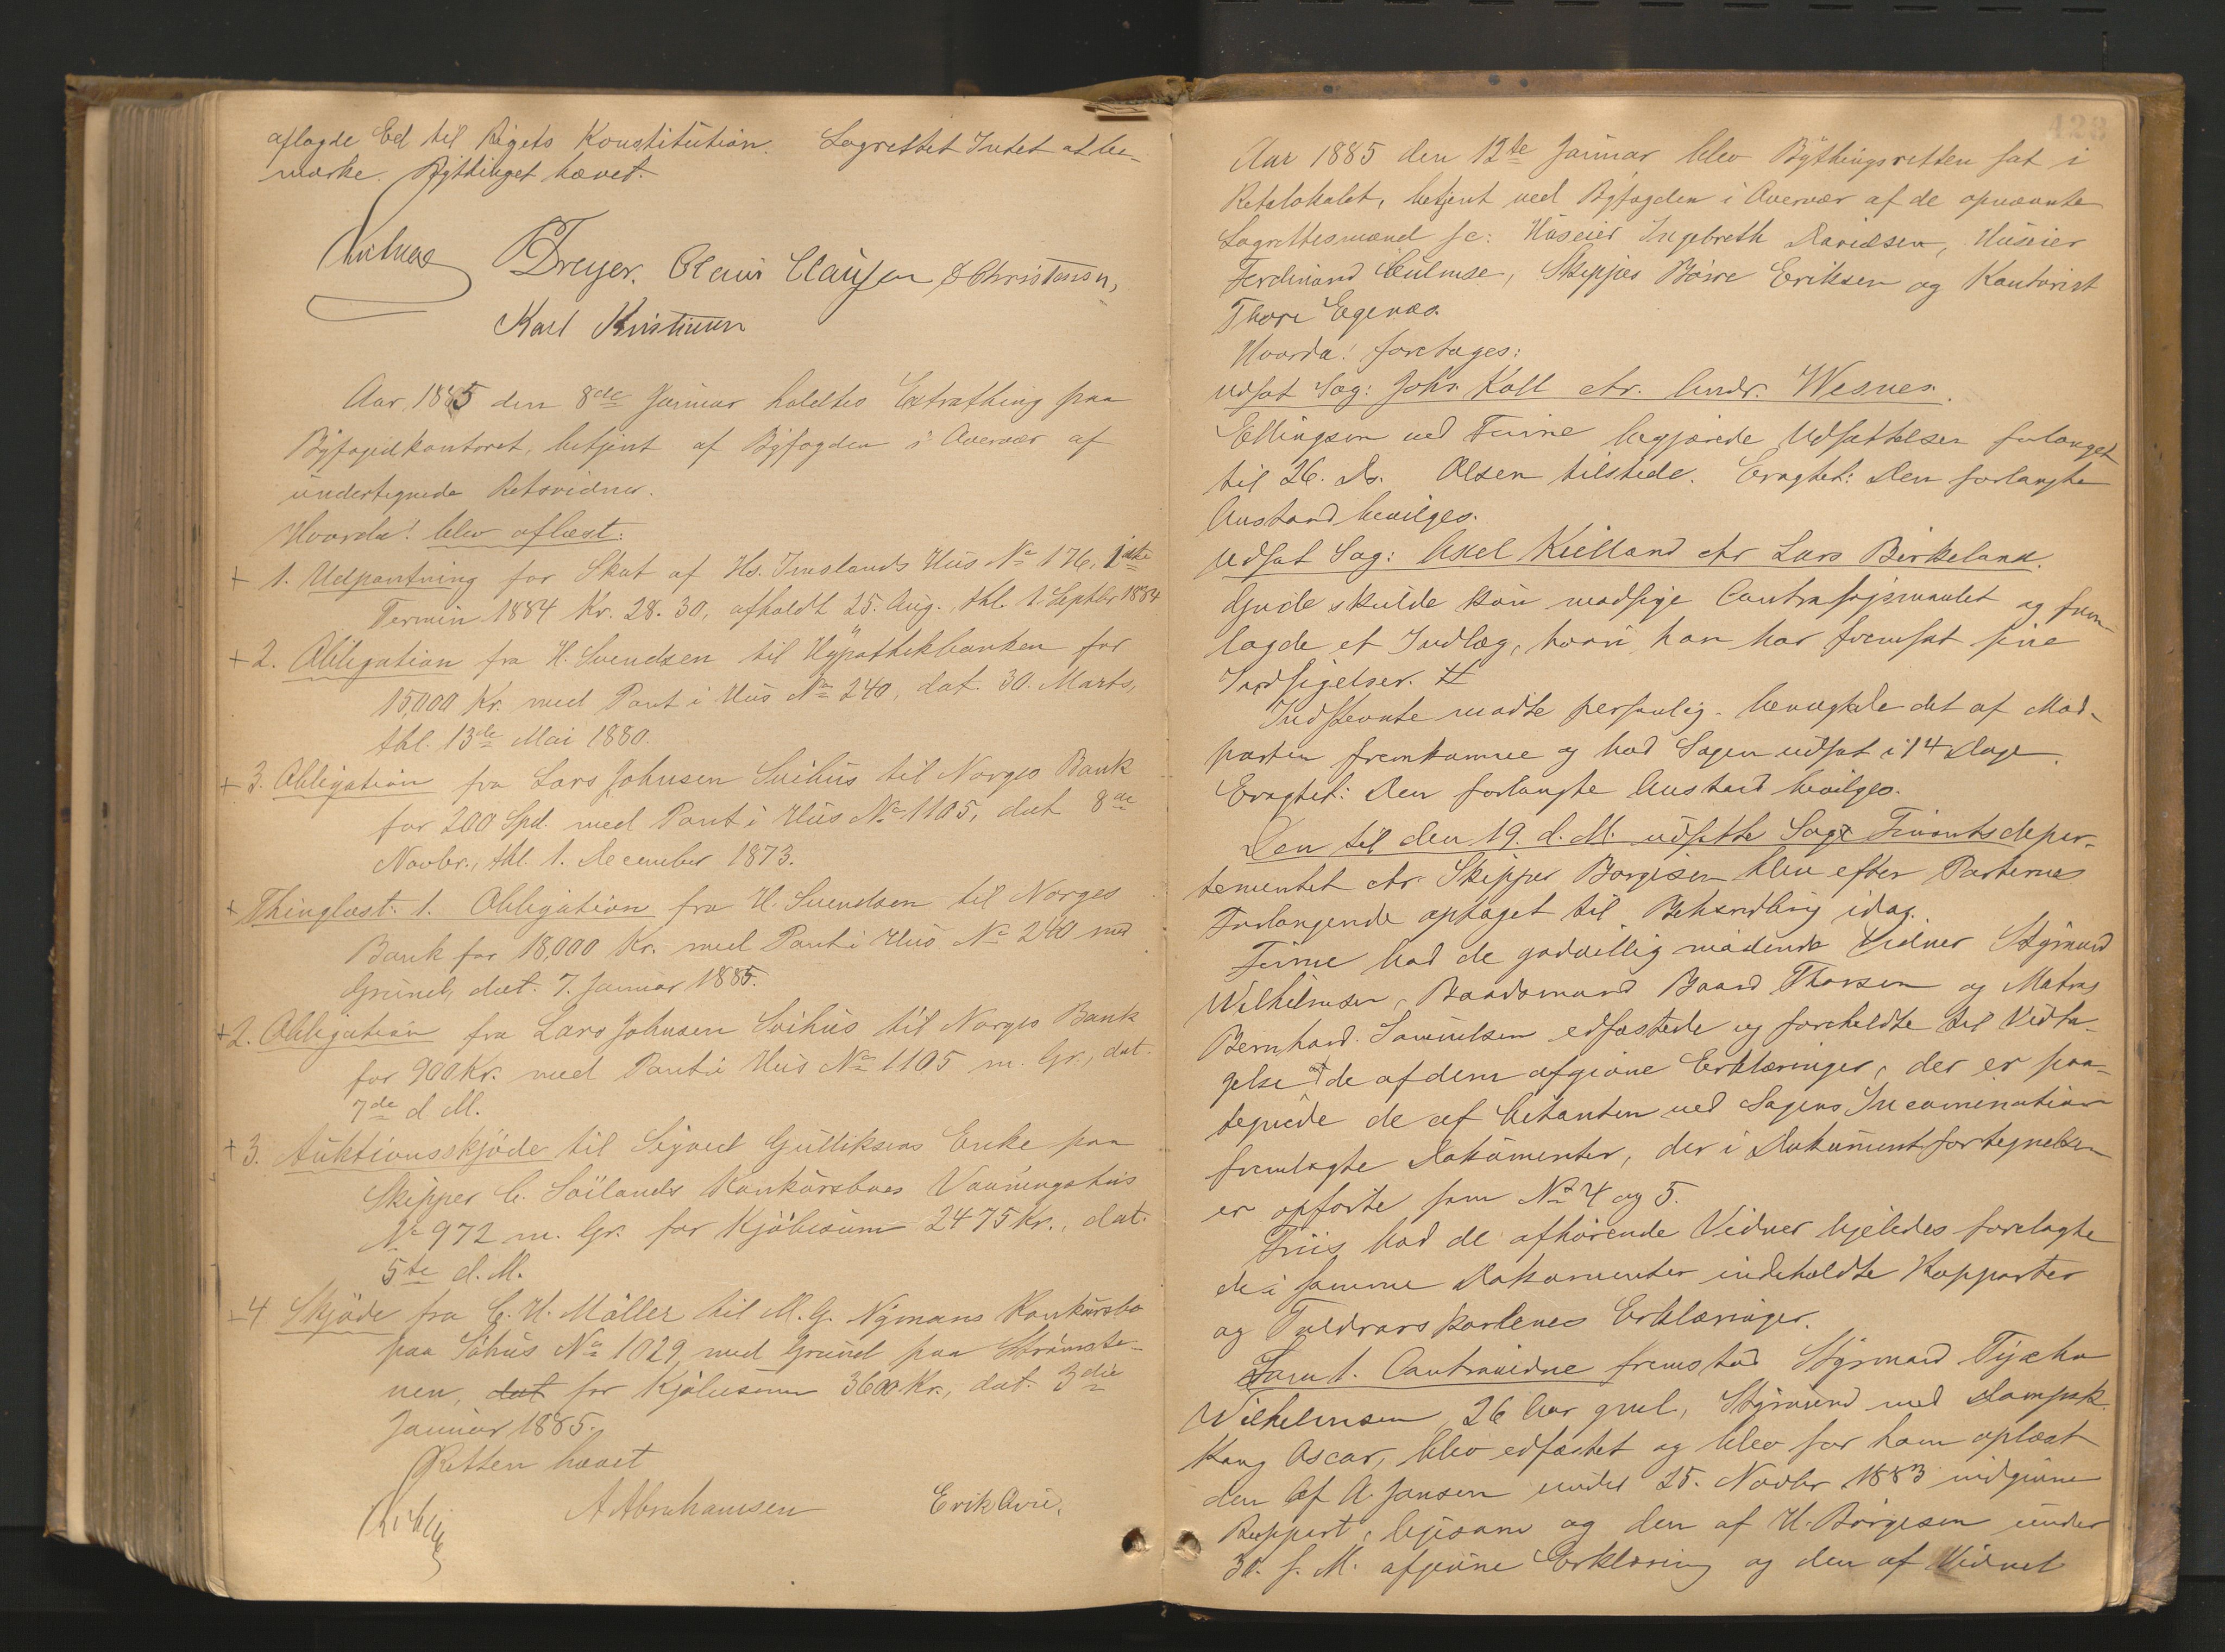 aflagde Ed til Rigets Konstitution. Lagrettet Intet at be-
mærke. Bythinget hævet.
Dreyer. Claus Clausen Christensen,
Karl Kristiansen
Aar 1885 den 8de Januar holdtes Extrathing paa
Byfogedkontoret, betjent af Byfogden i Overvær af
undertegnede Retsvidner.
Hvorda! blev aflæst:
+ 1. Udpantning for Skat af Hs. Imslands Hus No 176, 1ste
Termin 1884 Kr. 28.30, afholdt 25. Aug., thl. 1. Septbr 1884
+ 2. Obligation fra H. Svendsen til Hypothekbanken for
15,000 Kr. med Pant i Hus No 240, dat. 30. Marts,
thl. 13de Mai 1880.
+ 3. Obligation fra Lars Johnsen Svihus til Norges Bank
for 200 Spd. med Pant i Hus No 1105, dat 8de
Novbr., thl. 1. December 1873.
+ Thinglæst: 1. Obligation fra H. Svendsen til Norges
Bank for 18,000 Kr. med Pant i Hus No 240 med
Grund, dat. 7. Januar 1885.
+ 2. Obligation fra Lars Johnsen Svihus til Norges Bank
for 900 Kr. med Pant i Hus No 1105 m. Gr., dat.
7de d. M.
+ 3. Auktionsskjöde til Sigved Gulliksens Enke paa
Skipper C. Söilands Konkursboes Vaaningshus
No 972 m. Gr. for Kjöbesum 2475 Kr., dat.
5te d. M.
+ 4 Skjöde fra C. H. Möller til M. G. Nymans Konkursbo
paa Söhus No 1029, med Grund paa Strömste-
nen, dat for Kjöbesum 3600 Kr., dat. 3die
Januar 1885.
Retten hævet
A Abrahamsen Erik Övie.
428
Aar 1885 den 12te Januar blev Bythingsretten sat i
Retslokalet, betjent ved Byfogden i Overvær af de opnævnte
Lagrettesmænd sc: Huseier Ingebreth Davidsen, Huseier
Ferdinand, Skipper Börre Eriksen og Kontorist
Thore Egenæs.
Hvorda! foretages:
Udsat Sag: Johs. Koll ctr. Andr. Wesnes.
Ellingsen ved Finne begjærede Udsættelsen forlænget
til 26. Ds. Olsen tilstede. Eragtet: Den forlangte
Anstand bevilges.
Udsat Sag: Axel Kielland ctr Lars Birkeland.
Gjode skulde kun modsige Contrasögsmaalet og frem-
lagde et Indlæg, hvori han har fremsat sine
Indsigelser. #
Indstevnte mödte personlig, benægtede det af Mod-
parten fremkomne og bad Sagen udsat i 14 Dage.
Eragtet: Den forlangte Anstand bevilges.
Den til den 19. d. M. udsatte Sag: Finantsdepar-
tementet ctr. Skipper Börgesen blev efter Parternes
Forlangende optaget til Behandling idag.
Finne bad de godvillig mödende Vidner Styrmand
Wilhelmsen, Baadsmand Baard Thorsen og Matros
Bernhard Samuelsen edfæstede og foreholdte til Vedta-
gelse de af dem afgivne Erklæringer, der er paa-
tegnede de af Citanten ved Sagens Incamination
fremlagte Dokumenter, der i Dokumentfortegnelsen
er opförte som No 4 og 5.
Friis bad de afhörende Vidner ligeledes forelagte
de i samme Dokumenter indeholdte Rapporter
og Toldvæsskarlenes Erklæringer.
Som 1. Contravidne fremstod Styrmand Tycho
Wilhelmsen, 26 Aar gml., Styrmand med Dampsk.
Kong Oscar, blev edfæstet og blev for ham oplæst
den af A. Jansen under 25. Novbr 1883 indgivne
Rapport, ligesom og den af H. Börgesen under
30. s. M. afgivne Erklæring og den af Vidnet